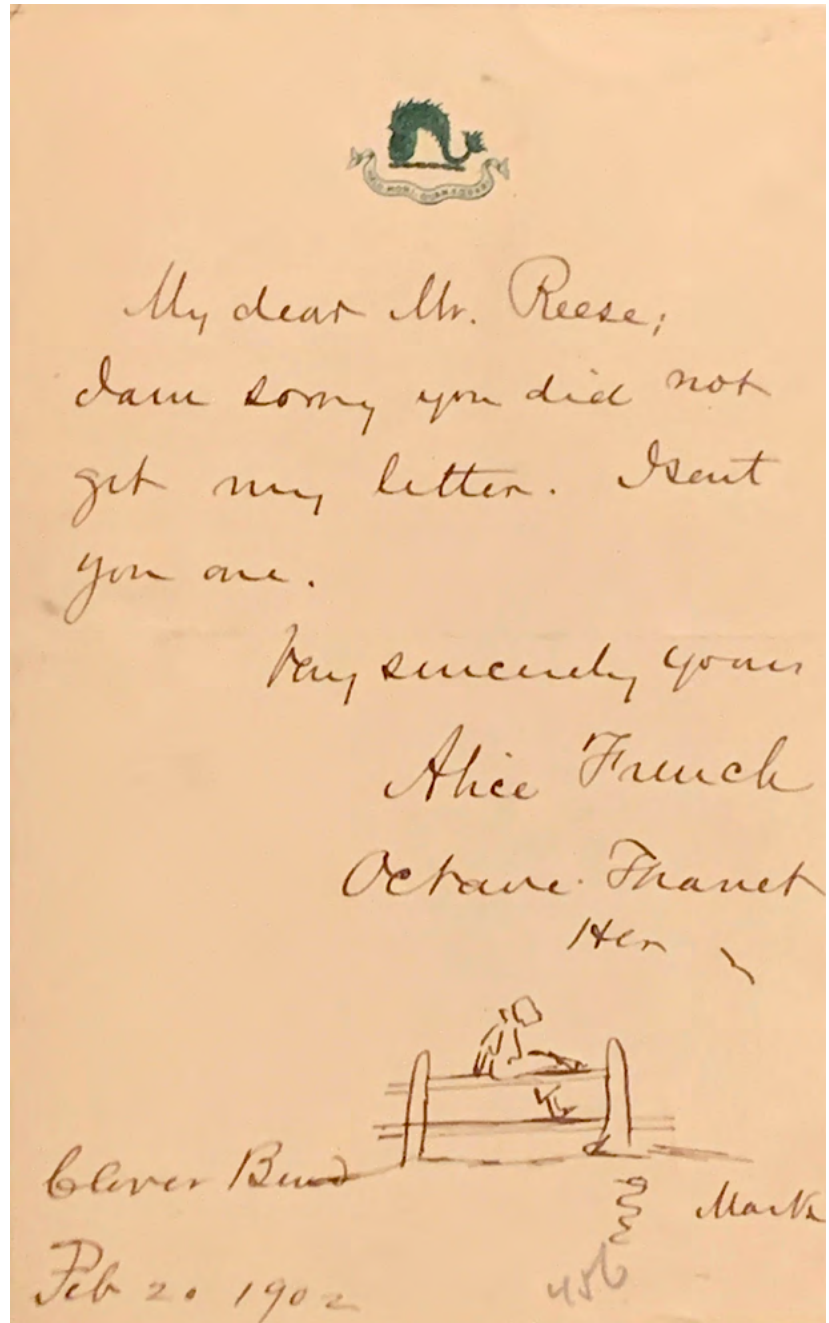 My dear Mr. Reese;
I am sorry you did not
get my letter. I sent
you one.
Very sincerely yours
Alice French
Octave Thanet
Her
Mark
Clover Bend
Feb 20 1902
456